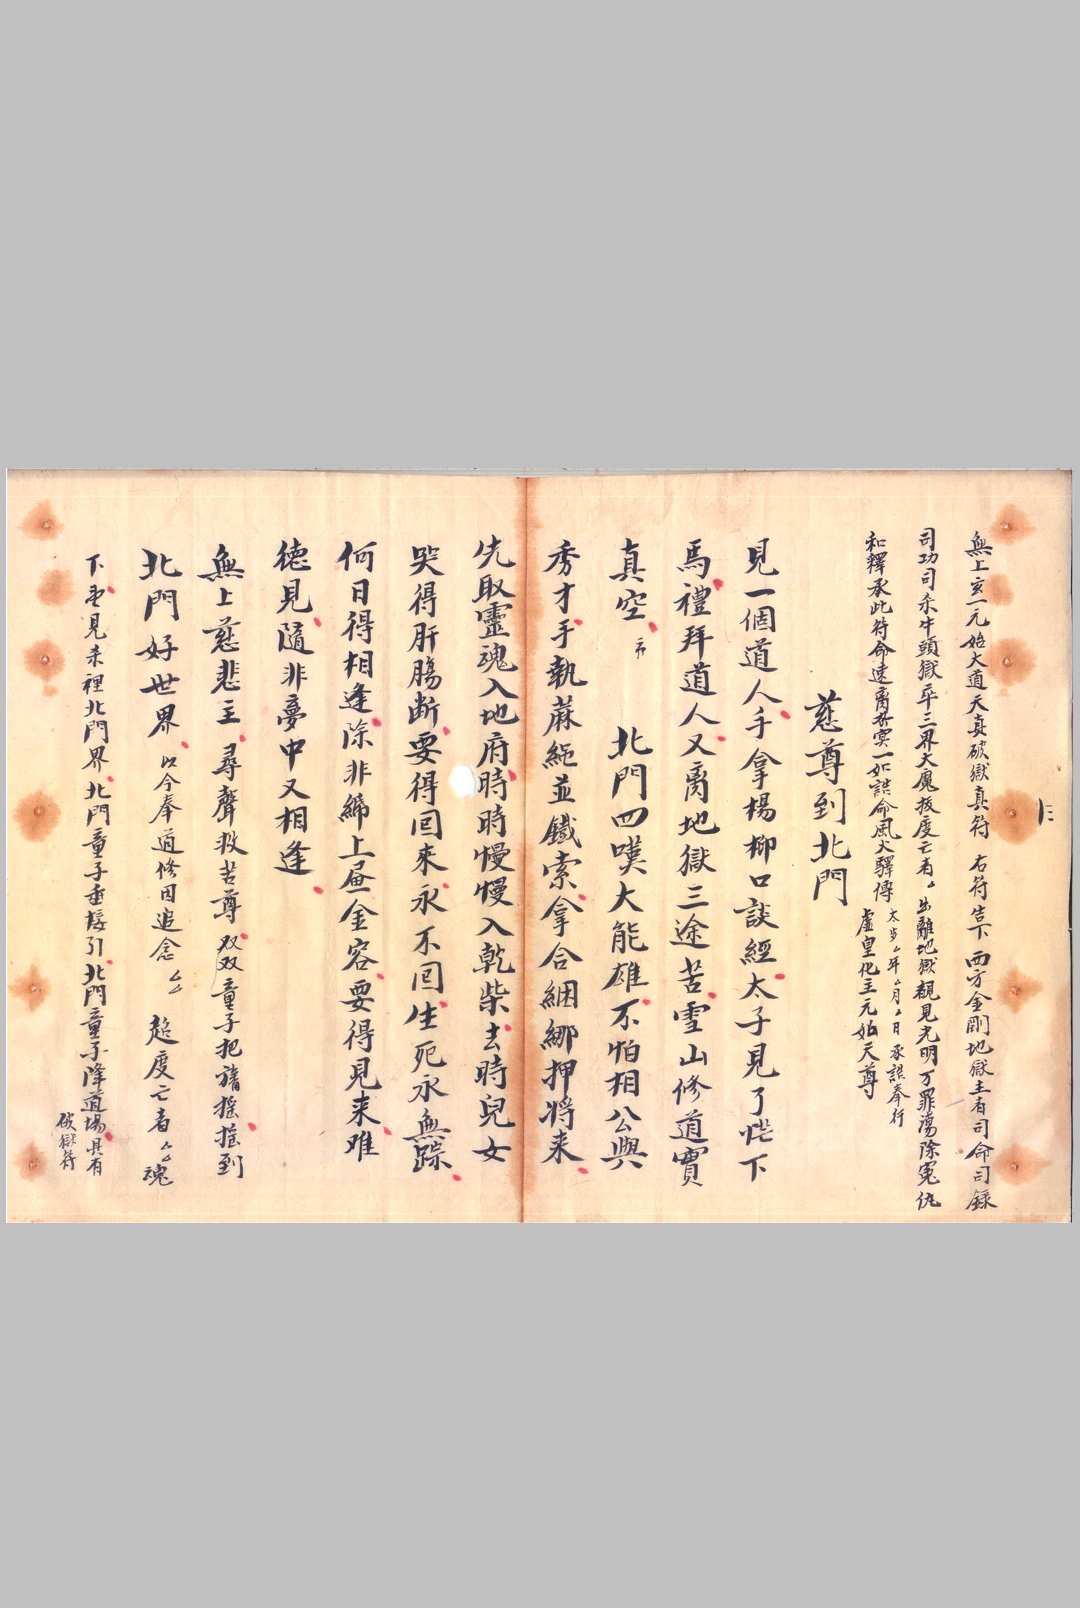 無上玄一元始大道天真破獄真符　右符告下　西方金剛地獄主者司命司錄
司功司杀牛頭獄卒三界大魔拔度亡者厶出離地獄覩見光明万罪蕩除冤仇
和釋承此符命速离冥一如誥命風火驛傳　太岁厶年厶月厶日承誥奉行　虛皇化主元始天尊
慈尊到北門
見一個道人手拿楊柳口談經太子見了忙下
馬禮拜道人又离地獄三途苦雪山修道寳
真空　北門四嘆大能雄不怕相公與
秀才手執蔴絕並鐵索拿合綑綁押將来
先取靈魂入地府時時慢慢入乾柴去時兒女
哭得肝腸断要得回来永不回生死永無踪
何日得相逢除非締上昼金容要得見来难
德見隨非夢中又相逢
無上慈悲主尋聲救苦尊双双童子把旛摇摇到
北門好世界以今奉道修因追念厶厶　超度亡者厶厶魂
下来見来裡北門界北門童子垂接引北門童子降道場具有
破獄符